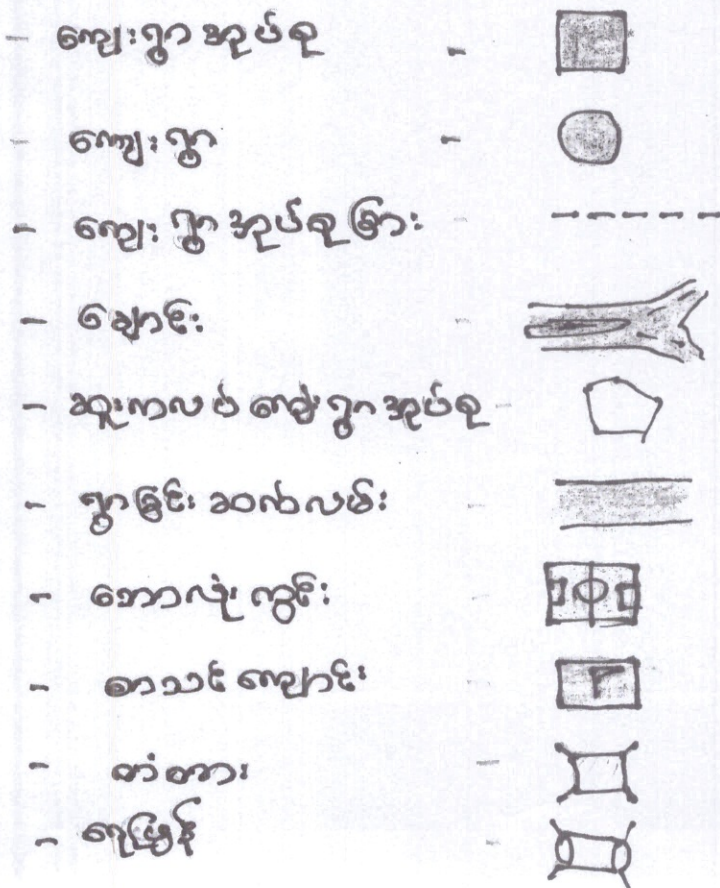 - ကျေးရွာအုပ်စု -
- ကျေးရွာ -
- ကျေးရွာအုပ်စုခြား -
- ချောင်း -
- ဆူးကလပ် ကျေးရွာအုပ်စု -
- ရွာချင်းဆက်လမ်း -
- ဘောလုံးကွင်း -
- စာသင်ကျောင်း -
- တံတား -
- ရေပြွန် -